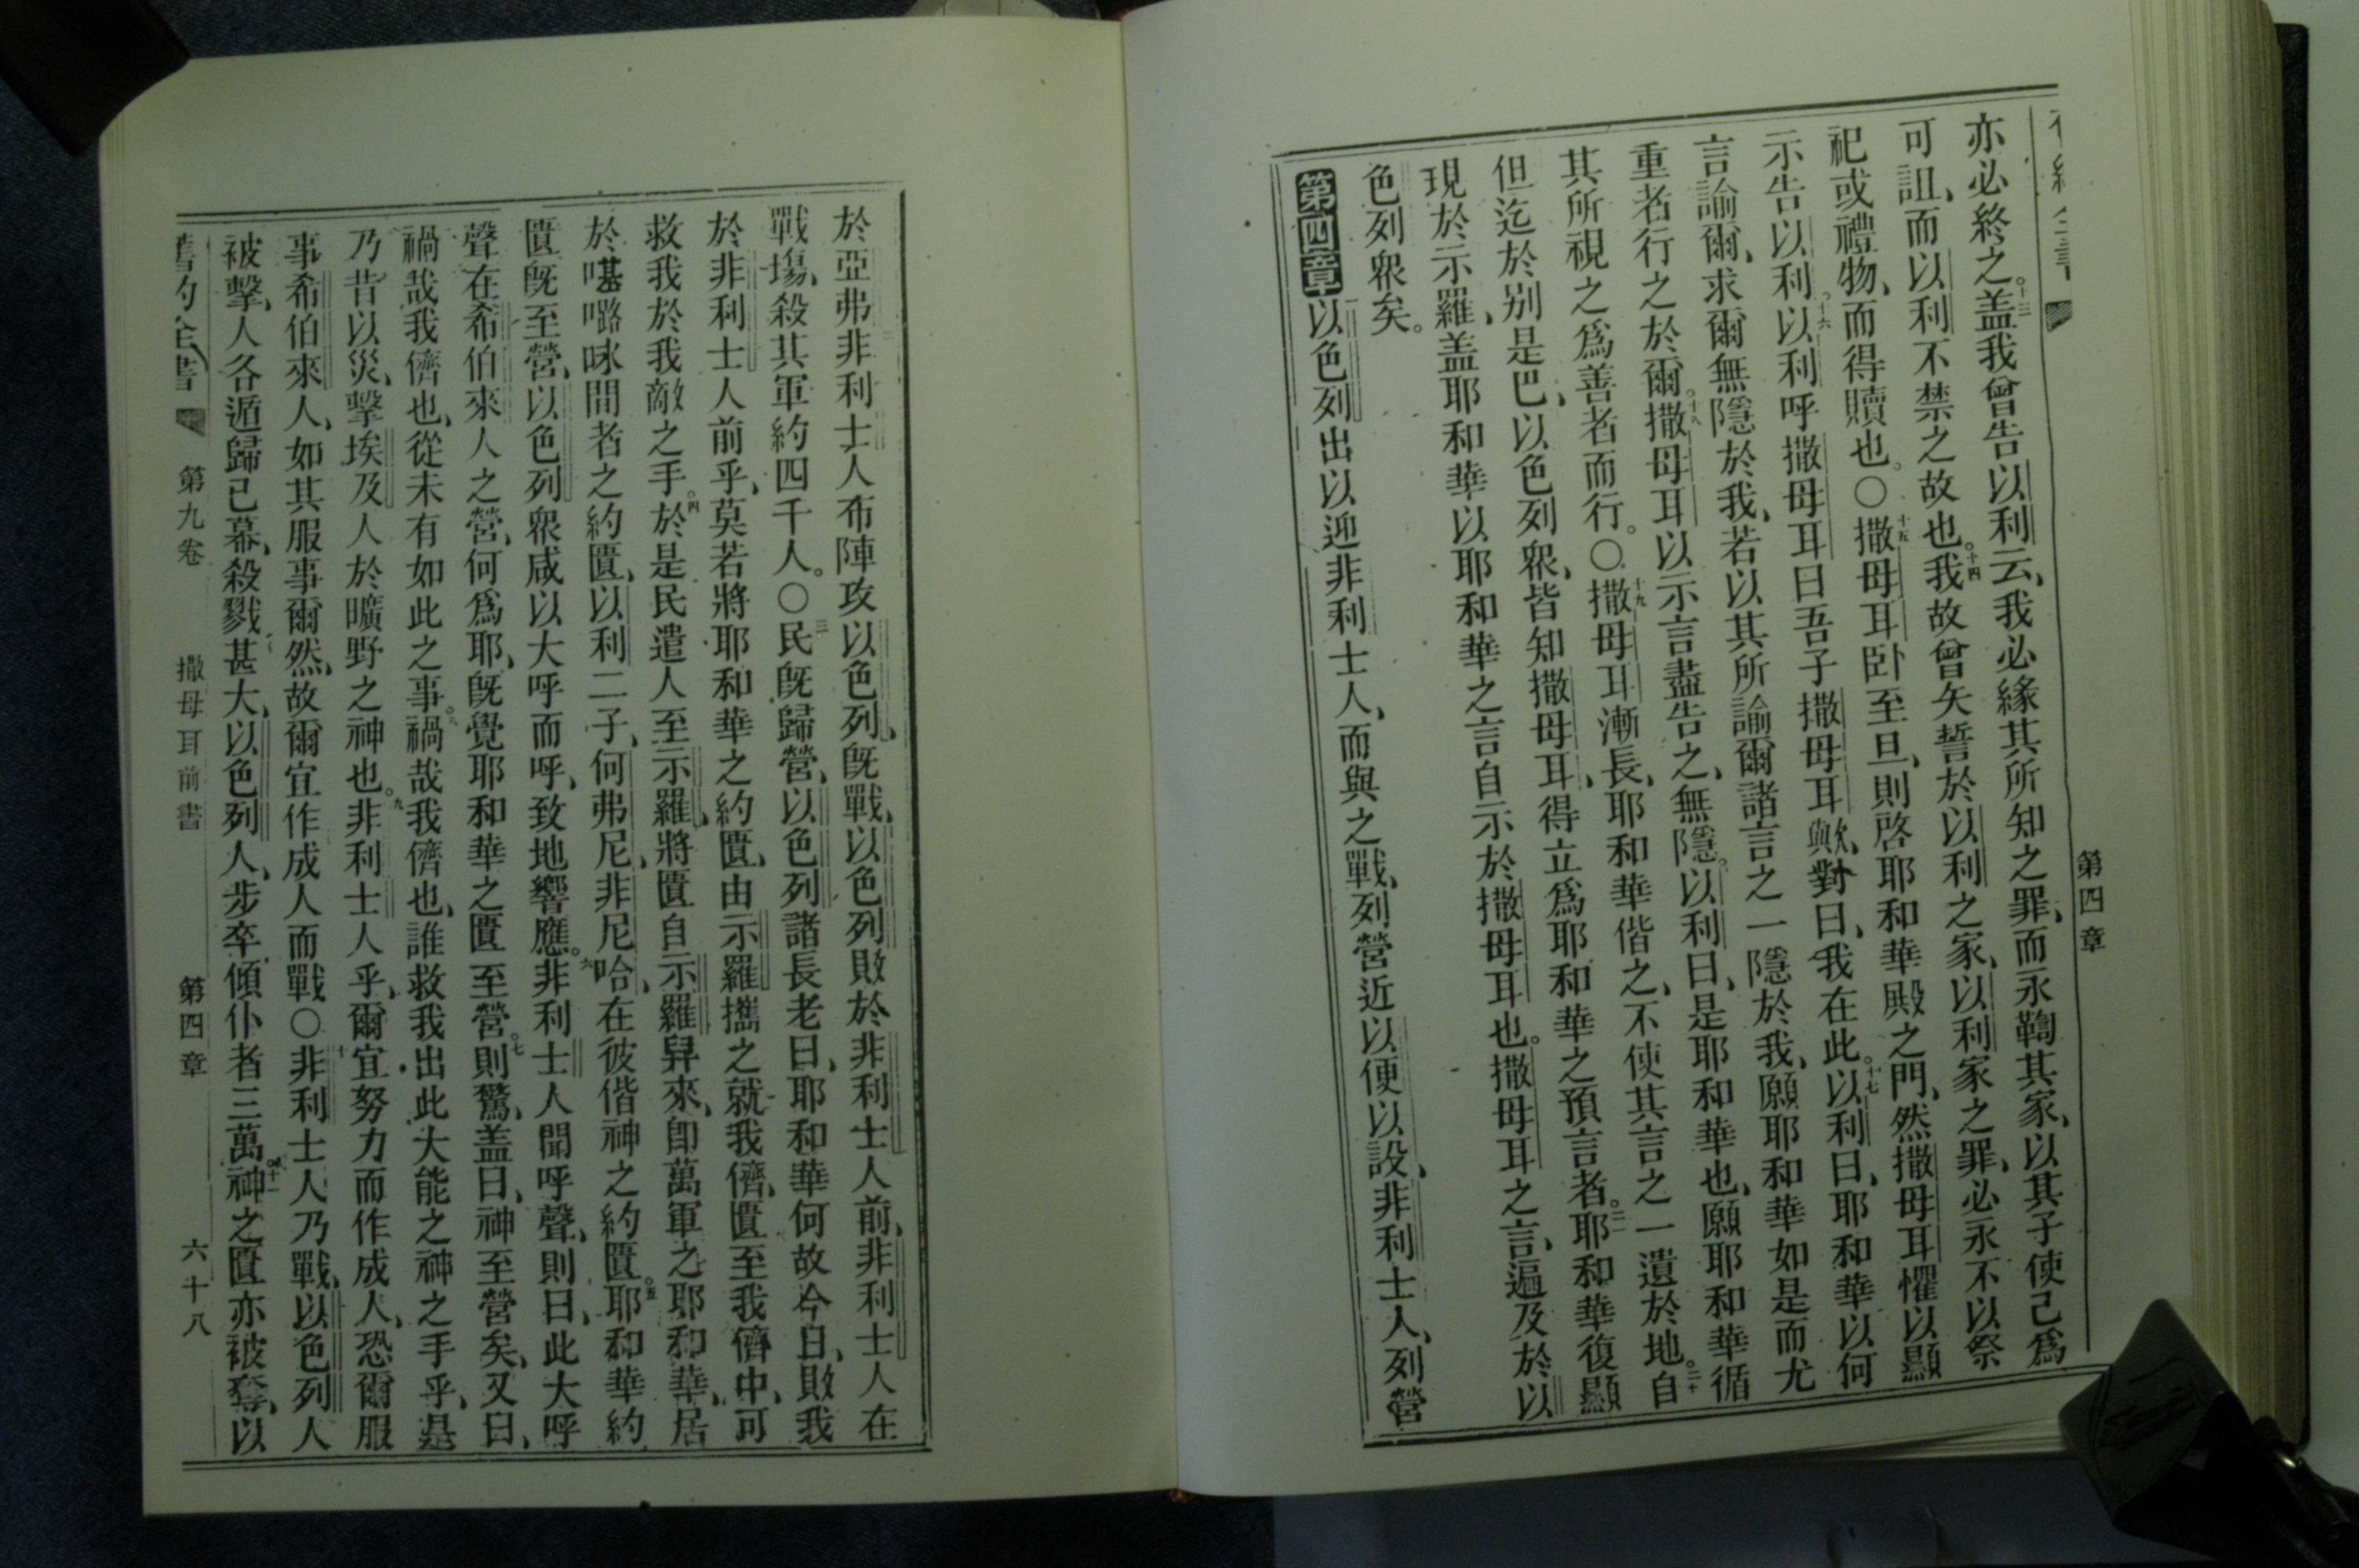 第四章
亦必終之。十三盖我曾告以利云、我必緣其所知之罪、而永鞫其家、以其子使己爲
可詛、而以利不禁之故也。十四我故曾矢誓於以利之家、以利家之罪、必永不以祭
祀或禮物、而得贖也。〇十五撒母耳卧至旦、則啓耶和華殿之門、然撒母耳懼以顯
示告以利。十六以利呼撒母耳曰吾子撒母耳歟、對曰、我在此。十七以利曰、耶和華以何
言諭爾、求爾無隱於我、若以其所諭爾諸言之一隱於我、願耶和華如是而尤
重者行之於爾。十八撒母耳以示言盡告之、無隱。以利曰、是耶和華也、願耶和華循
其所視之爲善者而行。〇十九撒母耳漸長、耶和華偕之、不使其言之一遺於地。二十自
但迄於别是巴、以色列衆、皆知撒母耳、得立爲耶和華之預言者。二一耶和華復顯
現於示羅、盖耶和華以耶和華之言自示於撒母耳也。撒母耳之言、遍及於以
色列衆矣。
第四章 以色列出以迎非利士人、而與之戰、列營近以便以設、非利士人、列營
於亞弗非利士人布陣攻以色列、旣戰、以色列敗於非利士人前、非利士人在
戰塲、殺其軍約四千人。〇三民旣歸營、以色列諸長老曰、耶和華何故今日、敗我
於非利士人前乎、莫若將耶和華之約匱、由示羅攜之就我儕、匱至我儕中、可
救我於我敵之手。四於是民遣人至示羅、將匱自示羅舁來、卽萬軍之耶和華、居
於𠸄㗔咏間者之約匱、以利二子、何弗尼、非尼哈、在彼偕神之約匱。五耶和華約
匱旣至營、以色列衆咸以大呼而呼、致地響應。六非利士人聞呼聲、則曰、此大呼
聲在希伯來人之營、何爲耶、旣覺耶和華之匱至營。七則驚、盖曰、神至營矣、又曰、
禍哉我儕也、從未有如此之事。八禍哉我儕也、誰救我出此大能之神之手乎、是
乃昔以災、擊埃及人於曠野之神也。九非利士人乎、爾宜努力而作成人、恐爾服
事希伯來人、如其服事爾然、故爾宜作成人而戰〇十非利士人乃戰、以色列人
被擊、人各遁歸己幕、殺戮甚大、以色列人、步卒傾仆者三萬。十一神之匱亦被奪、以
舊約全書 第九卷 撒母耳前書 第四章 六十八